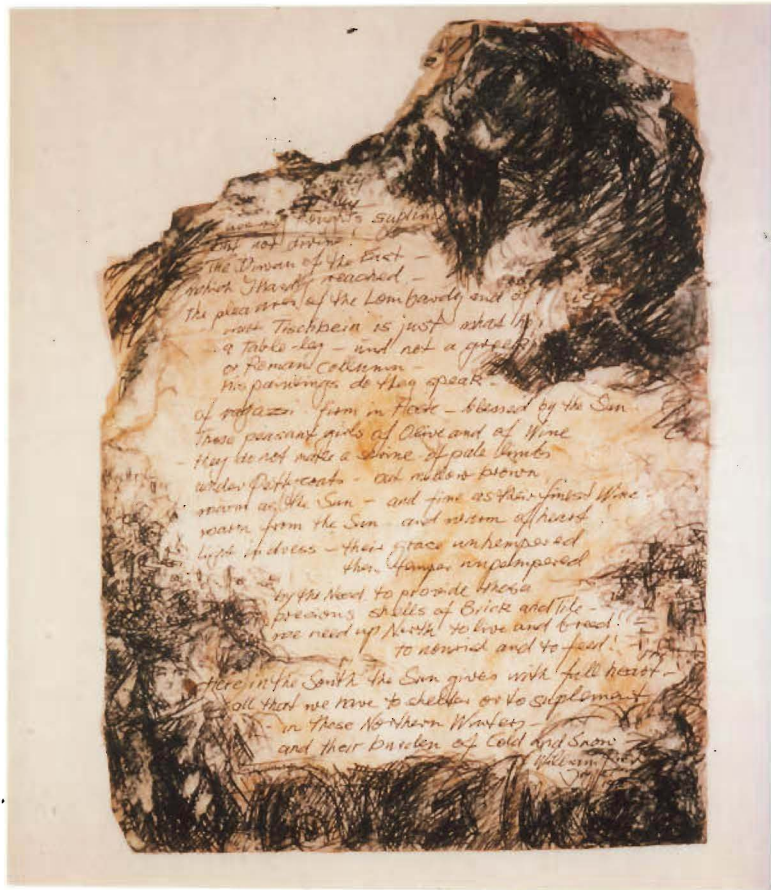 but not divine!
The Divan of the East –
which I hardly reached –
The pleasures of the Lombardy and of
Tischbein is just what he
a Table-leg – and not a greek
or Roman Collumn –
his paintings do they speak –
of ragazzi firm in Flesh – blessed by the Sun
Those peasant girls of Olive and of Wine
they do not make a shrine of pale limbs
under Petti-coats – but mellow brown
warm as the Sun – and fine as their finest Wine –
warm from the Sun and warm of heart
light in dress – their grace unhempered
their temper unpampered
by the Need to provide those
precious shells of Brick and Tile –
we need up North to live and breed!
to nourish and to feed!
Here in the South the Sun gives with full heart –
all that we have to shelter or to suplement
– in those Northern Winters –
and their burden of Cold and Snow